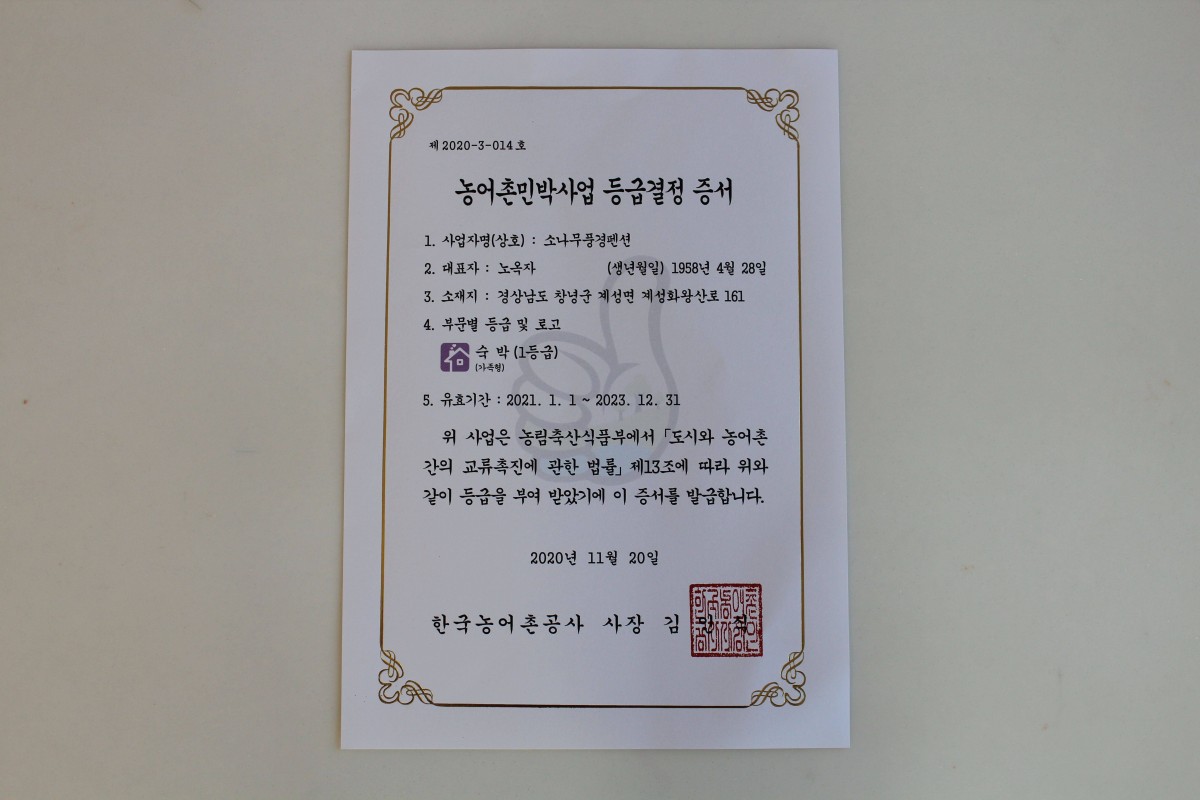 제 2020-3-014 호
농어촌민박사업 등급결정 증서
1. 사업자명(상호) : 소나무풍경펜션
2. 대표자 : 노옥자 (생년월일) 1958년 4월 28일
3. 소재지 : 경상남도 창녕군 계성면 계성화왕산로 161
4. 부문별 등급 및 로고
숙 박 (1등급)
(가족형)
5. 유효기간 : 2021. 1. 1 ~ 2023. 12. 31
위 사업은 농림축산식품부에서 「도시와 농어촌
간의 교류촉진에 관한 법률」 제13조에 따라 위와
같이 등급을 부여 받았기에 이 증서를 발급합니다.
2020년 11월 20일
한국농어촌공사 사장 김